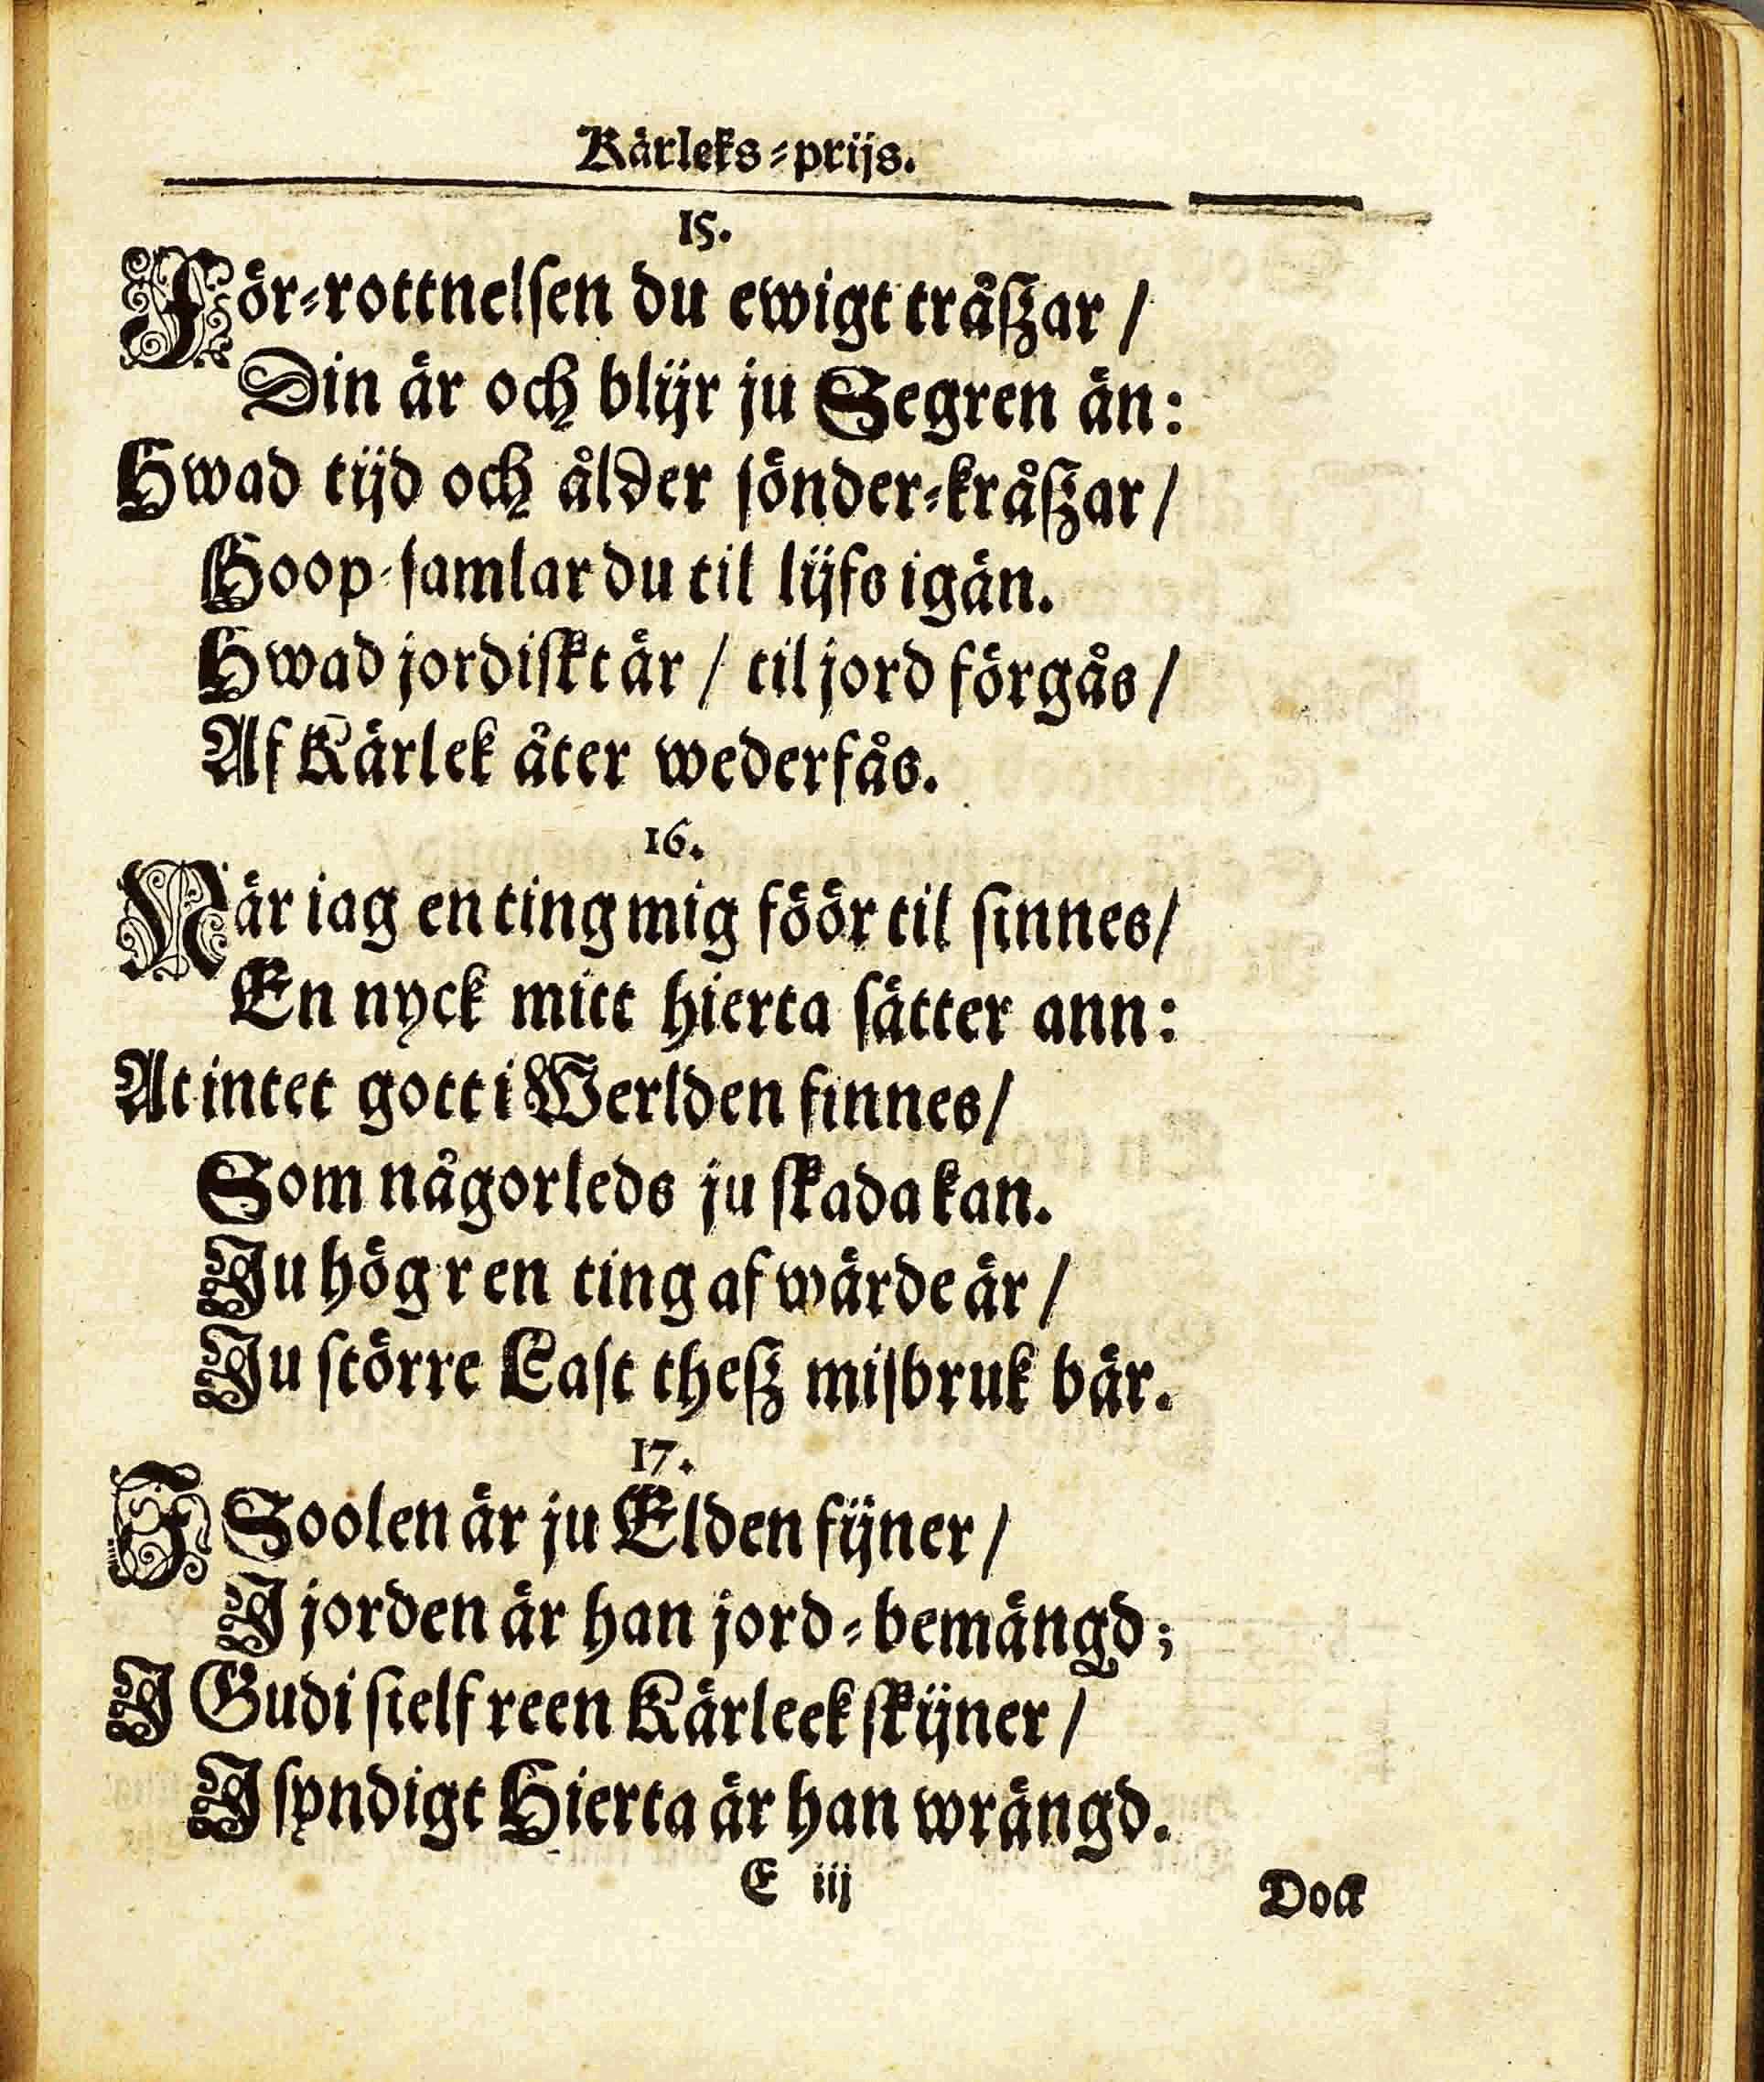 Kärleks-prijs.
15.
För-rottnelsen du ewigt tråßar /
Din är och blijr ju Segren än:
Hwad tijd och ålder sönder-kråßar /
Hoop-samlar du til lijfs igän.
Hwad jordiskt är / til jord förgås /
Af Kärlek åter wederfås.
16.
När iag en ting mig föör til sinnes /
En nyck mitt hierta sätter ann:
At intet gott i Werlden finnes /
Som någorleds ju skada kan.
Ju högr en ting af wärde är /
Ju större Last theß misbruk bär.
17.
I Soolen är ju Elden fijner /
I jorden är han jord-bemängd;
I Gudi sielf reen Kärleek skijner /
I syndigt Hierta är han wrängd.
E iij
Dock